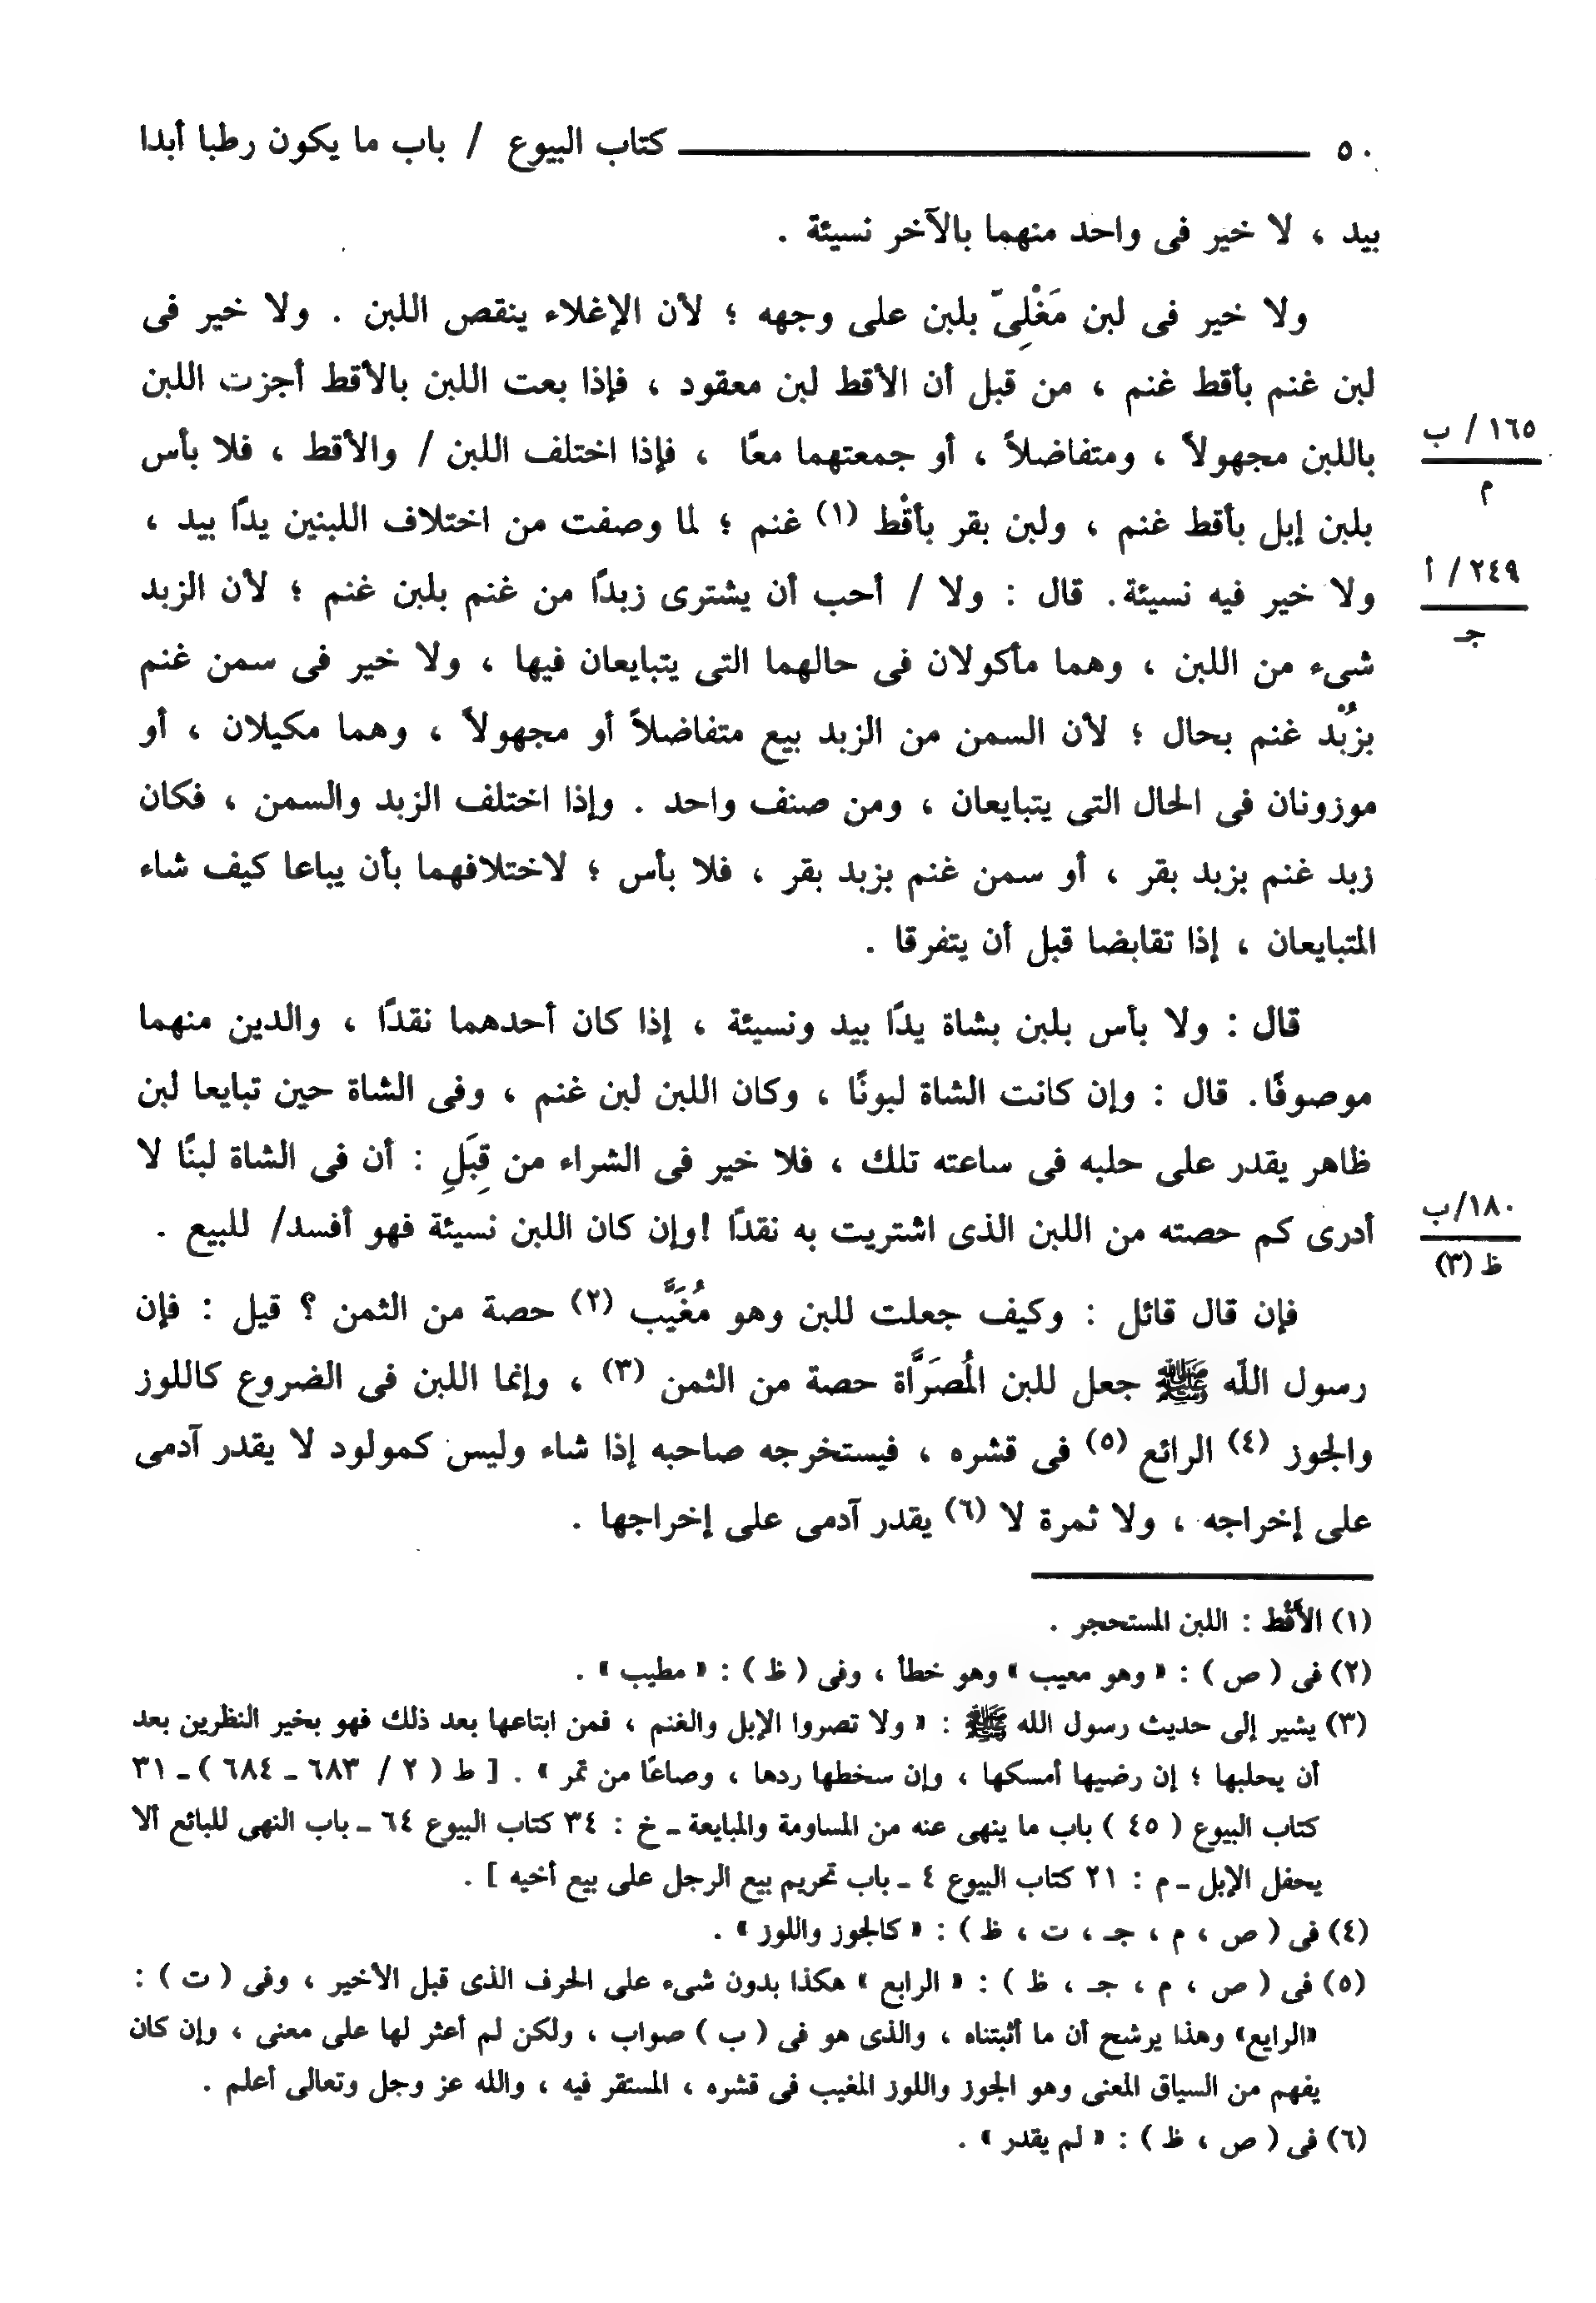 ٥٠ كتاب البيوع / باب ما يكون رطبا أبدا
بيد ، لا خير فى واحد منهما بالآخر نسيئة .
ولا خير فى لبن مَغْلِىّ بلبن على وجهه ؛ لأن الإغلاء ينقص اللبن . ولا خير فى
لبن غنم بأقط غنم ، من قبل أن الأقط لبن معقود ، فإذا بعت اللبن بالأقط أجزت اللبن
باللبن مجهولاً ، ومتفاضلاً ، أو جمعتهما معًا ، فإذا اختلف اللبن / والأقط ، فلا بأس
١٦٥ / ب
م
بلبن إبل بأقط غنم ، ولبن بقر بأقْط (١) غنم ؛ لما وصفت من اختلاف اللبنين يدًا بيد ،
ولا خير فيه نسيئة. قال : ولا / أحب أن يشترى زبدًا من غنم بلبن غنم ؛ لأن الزبد
٢٤٩ / أ
جـ
شىء من اللبن ، وهما مأكولان فى حالهما التى يتبايعان فيها ، ولا خير فى سمن غنم
بزُبْد غنم بحال ؛ لأن السمن من الزبد بيع متفاضلاً أو مجهولاً ، وهما مكيلان ، أو
موزونان فى الحال التى يتبايعان ، ومن صنف واحد . وإذا اختلف الزبد والسمن ، فكان
زبد غنم بزبد بقر ، أو سمن غنم بزبد بقر ، فلا بأس ؛ لاختلافهما بأن يباعا كيف شاء
المتبايعان ، إذا تقابضا قبل أن يتفرقا .
قال : ولا بأس بلبن بشاة يدًا بيد ونسيئة ، إذا كان أحدهما نقدًا ، والدين منهما
موصوفًا. قال : وإن كانت الشاة لبونًا ، وكان اللبن لبن غنم ، وفى الشاة حين تبايعا لبن
ظاهر يقدر على حلبه فى ساعته تلك ، فلا خير فى الشراء من قِبَلِ : أن فى الشاة لبنًا لا
أدرى كم حصته من اللبن الذى اشتريت به نقدًا !وإن كان اللبن نسيئة فهو أفسد/ للبيع .
١٨٠/ب
ظ (٣)
فإن قال قائل : وكيف جعلت للبن وهو مُغَيَّب (٢) حصة من الثمن ؟ قيل : فإن
رسول اللّه ﷺ جعل للبن المُصَرَّاة حصة من الثمن (٣) ، وإنما اللبن فى الضروع كاللوز
والجوز (٤) الرائع (٥) فى قشره ، فيستخرجه صاحبه إذا شاء وليس كمولود لا يقدر آدمى
على إخراجه ، ولا ثمرة لا (٦) يقدر آدمى على إخراجها .
(١) الأقْط : اللبن المستحجر .
(٢) فى ( ص ) : « وهو معيب » وهو خطأ ، وفى ( ظ ) : « مطيب » .
(٣) يشير إلى حديث رسول الله ﷺ : « ولا تصروا الإبل والغنم ، فمن ابتاعها بعد ذلك فهو بخير النظرين بعد
أن يحلبها ؛ إن رضيها أمسكها ، وإن سخطها ردها ، وصاعًا من تمر » . [ ط ( ٢ / ٦٨٣ ـ ٦٨٤ ) ـ ٣١
كتاب البيوع ( ٤٥ ) باب ما ينهى عنه من المساومة والمبايعة ـ خ : ٣٤ كتاب البيوع ٦٤ ـ باب النهى للبائع ألا
يحفل الإبل ـ م : ٢١ كتاب البيوع ٤ ـ باب تحريم بيع الرجل على بيع أخيه ] .
(٤) فى ( ص ، م ، جـ ، ت ، ظ ) : « كالجوز واللوز » .
(٥) فى ( ص ، م ، جـ ، ظ ) : « الرابع » هكذا بدون شىء على الحرف الذى قبل الأخير ، وفى ( ت ) :
«الرايع» وهذا يرشح أن ما أثبتناه ، والذى هو فى ( ب ) صواب ، ولكن لم أعثر لها على معنى ، وإن كان
يفهم من السياق المعنى وهو الجوز واللوز المغيب فى قشره ، المستقر فيه ، والله عز وجل وتعالى أعلم .
(٦) فى ( ص ، ظ ) : « لم يقدر » .